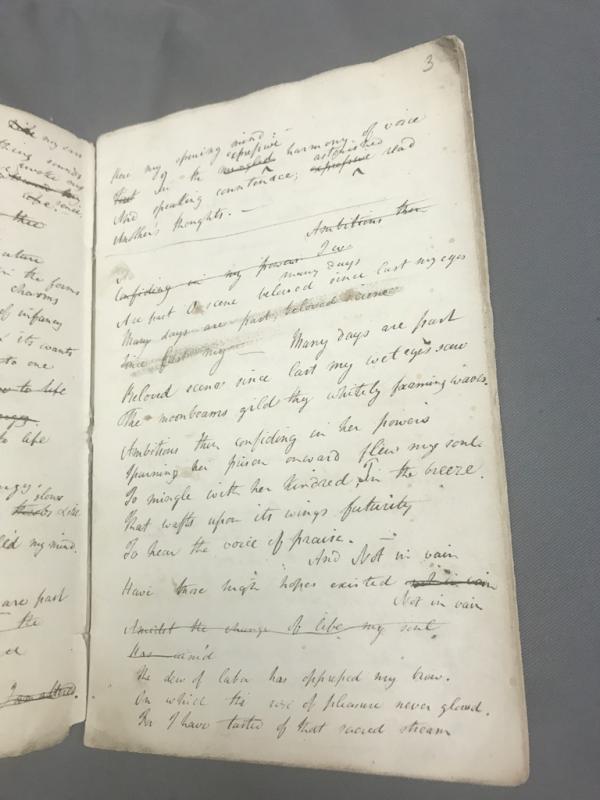 my son
3
now my opening mind:
expressive
But In the harmony of voice
astonished
And speaking countenance, expressive read
Another's thoughts. —
Ambitious then
I
Confiding in my powers I
many days
Are past O scene beloved since last my eyes
Many days are past, beloved science
Since last my — Many days are past
Beloved scenes since last my wet eyes saw
The moonbeams gild thy whitely foaming waves.
Ambitious then confiding in her powers
Spurning her prison onward flew my soul
To mingle with her Kindred, In the breeze
That wafts upon its wings futurity
To hear the voice of praise. —
And Not in vain
Have those high hopes existed not in vain
Not in vain
Amidst the change of life my soul
Has
The dew of labor has oppressed my brow.
On which the rose of pleasure never glowed.
For I have tasted of that sacred stream
nature
in the forms
charms
of infancy
its wants
to one
to life
to life
slow
my mind.
are past
the
I am altered.